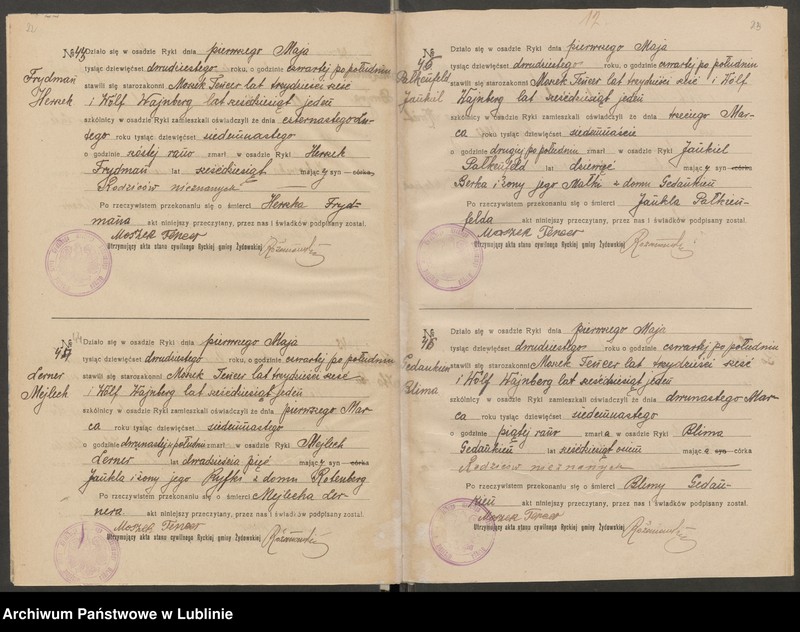 22
№ 43 Działo się w osadzie Ryki dnia pierwszego Maja
Frydman Herszek
tysiąc dziewięćset dwudziestego roku, o godzinie czwartej po południu
stawili się starozakonni Moszek Tencer lat trzydzieści sześć
i Wólf Wajnberg lat sześćdziesiąt jeden
szkólnicy w osadzie Ryki zamieszkali oświadczyli że dnia czternastego Lu-
tego roku tysiąc dziewięćset siedemnastego
o godzinie szóstej rano zmarł w osadzie Ryki Herszek
Frydman lat sześćdziesiąt mający syn córka
Rodziców nieznanych
Po rzeczywistem przekonaniu się o śmierci Herszka Fryd-
mana akt niniejszy przeczytany, przez nas i świadków podpisany został.
Moszek Tencer
Utrzymujący akta stanu cywilnego Ryckiej gminy Żydowskiej
№ 44
Lerner Mejlech
Działo się w osadzie Ryki dnia pierwszego Maja
tysiąc dziewięćset dwudziestego roku, o godzinie czwartej po południu
stawili się starozakonni Moszek Tencer lat trzydzieści sześć
i Wólf Wajnberg lat sześćdziesiąt jeden
szkólnicy w osadzie Ryki zamieszkali oświadczyli że dnia pierwszego Mar-
ca roku tysiąc dziewięćset siedemnastego
o godzinie dwunastej w południe zmarł w osadzie Ryki Mejlech
Lerner lat dwadzieścia pięć mający syn córka
Jankla i żony jego Ryfki z domu Rotenberg
Po rzeczywistem przekonaniu się o śmierci Mejlecha Ler-
nera akt niniejszy przeczytany, przez nas i świadków podpisany został.
Moszek Tencer
Utrzymujący akta stanu cywilnego Ryckiej gminy Żydowskiej
12
23
№ 45
Jankiel
Działo się w osadzie Ryki dnia pierwszego Maja
tysiąc dziewięćset dwudziestego roku, o godzinie czwartej po południu
stawili się starozakonni Moszek Tencer lat trzydzieści sześć i Wólf
Wajnberg lat sześćdziesiąt jeden
szkólnicy w osadzie Ryki zamieszkali oświadczyli że dnia trzeciego Mar-
ca roku tysiąc dziewięćset siedemnaście
o godzinie drugiej po południu zmarł w osadzie Ryki Jankiel
lat dziewięć mający syn córka
Berka i żony jego Małki z domu Gedankien
Po rzeczywistem przekonaniu się o śmierci Jankla Pałkien-
felda akt niniejszy przeczytany, przez nas i świadków podpisany został.
Moszek Tencer
Utrzymujący akta stanu cywilnego Ryckiej gminy Żydowskiej
№ 46
Gedankien Blima
Działo się w osadzie Ryki dnia pierwszego Maja
tysiąc dziewięćset dwudziestego roku, o godzinie czwartej po południu
stawili się starozakonni Moszek Tencer lat trzydzieści sześć
i Wólf Wajnberg lat sześćdziesiąt jeden
szkólnicy w osadzie Ryki zamieszkali oświadczyli że dnia dwunastego Mar-
ca roku tysiąc dziewięćset siedemnastego
o godzinie piątej rano zmarła w osadzie Ryki Blima
Gedankien lat sześćdziesiąt osiem mająca syn córka
Rodziców nieznanych
Po rzeczywistem przekonaniu się o śmierci Blimy Gedan-
kien akt niniejszy przeczytany, przez nas i świadków podpisany został.
Moszek Tencer
Utrzymujący akta stanu cywilnego Ryckiej gminy Żydowskiej
Archiwum Państwowe w Lublinie